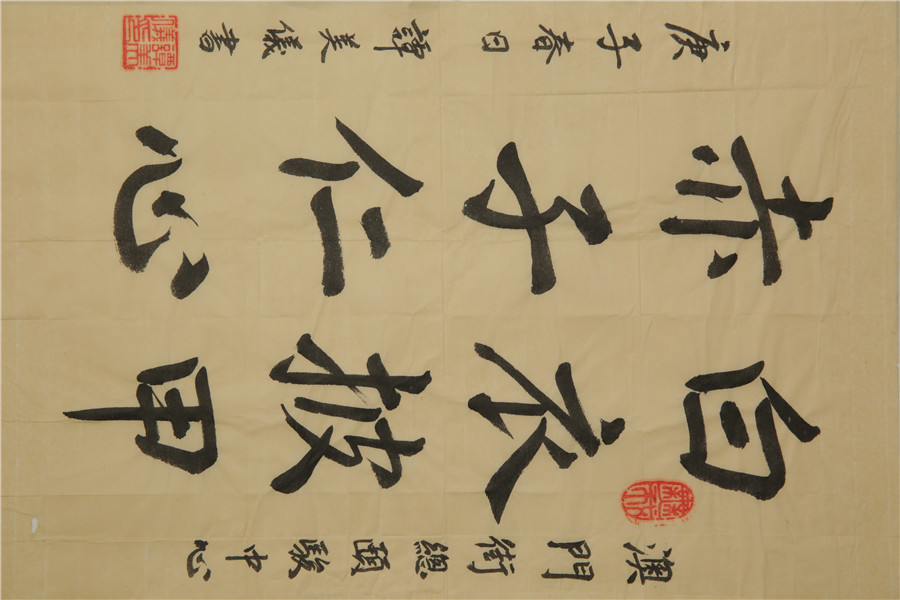 澳門街總頤駿中心
白衣披甲
赤子仁心
庚子春日 譚美儀書